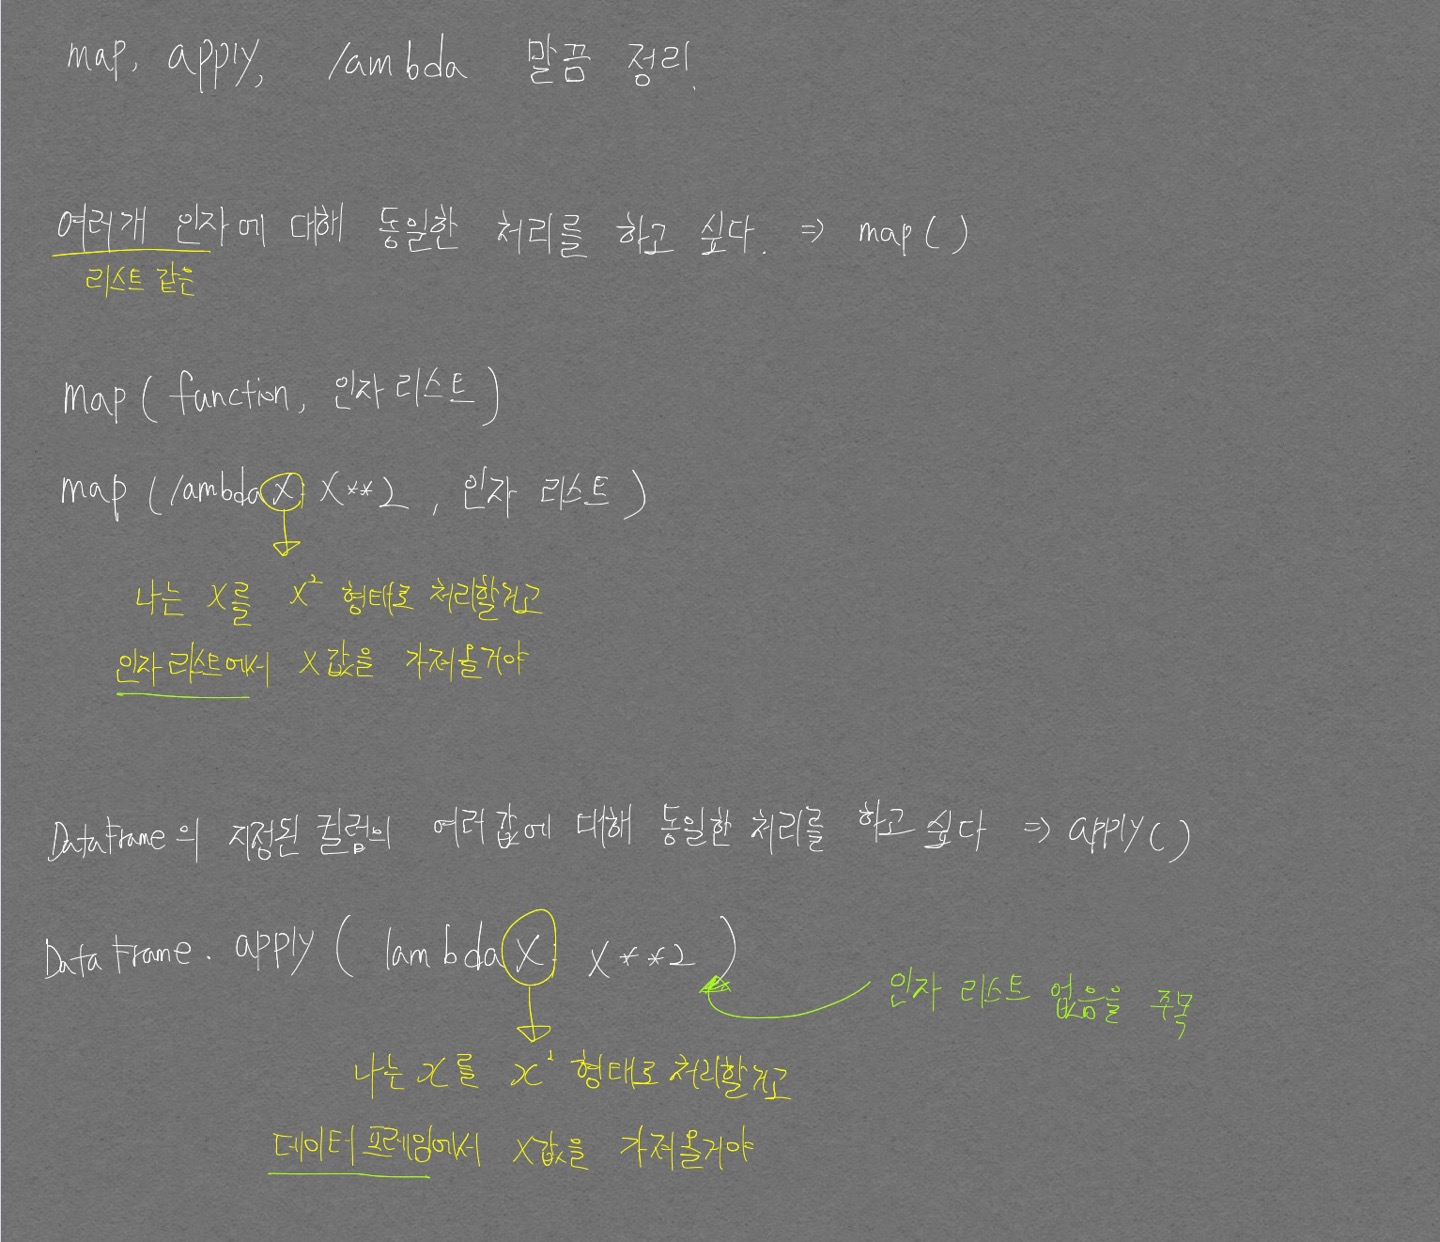 map, apply, lambda 말끔 정리.
여러개 인자에 대해 동일한 처리를 하고 싶다. ⇒ map()
리스트 같은
map(function, 인자 리스트)
map(lambda x: x**2, 인자 리스트)
나는 x를 x² 형태로 처리할거고
인자 리스트에서 x값을 가져올거야
DataFrame의 지정된 컬럼의 여러 값에 대해 동일한 처리를 하고 싶다 ⇒ apply()
DataFrame.apply(lambda x: x**2)
인자 리스트 없음을 주목
나는 x를 x² 형태로 처리할거고
데이터 프레임에서 x값을 가져올거야